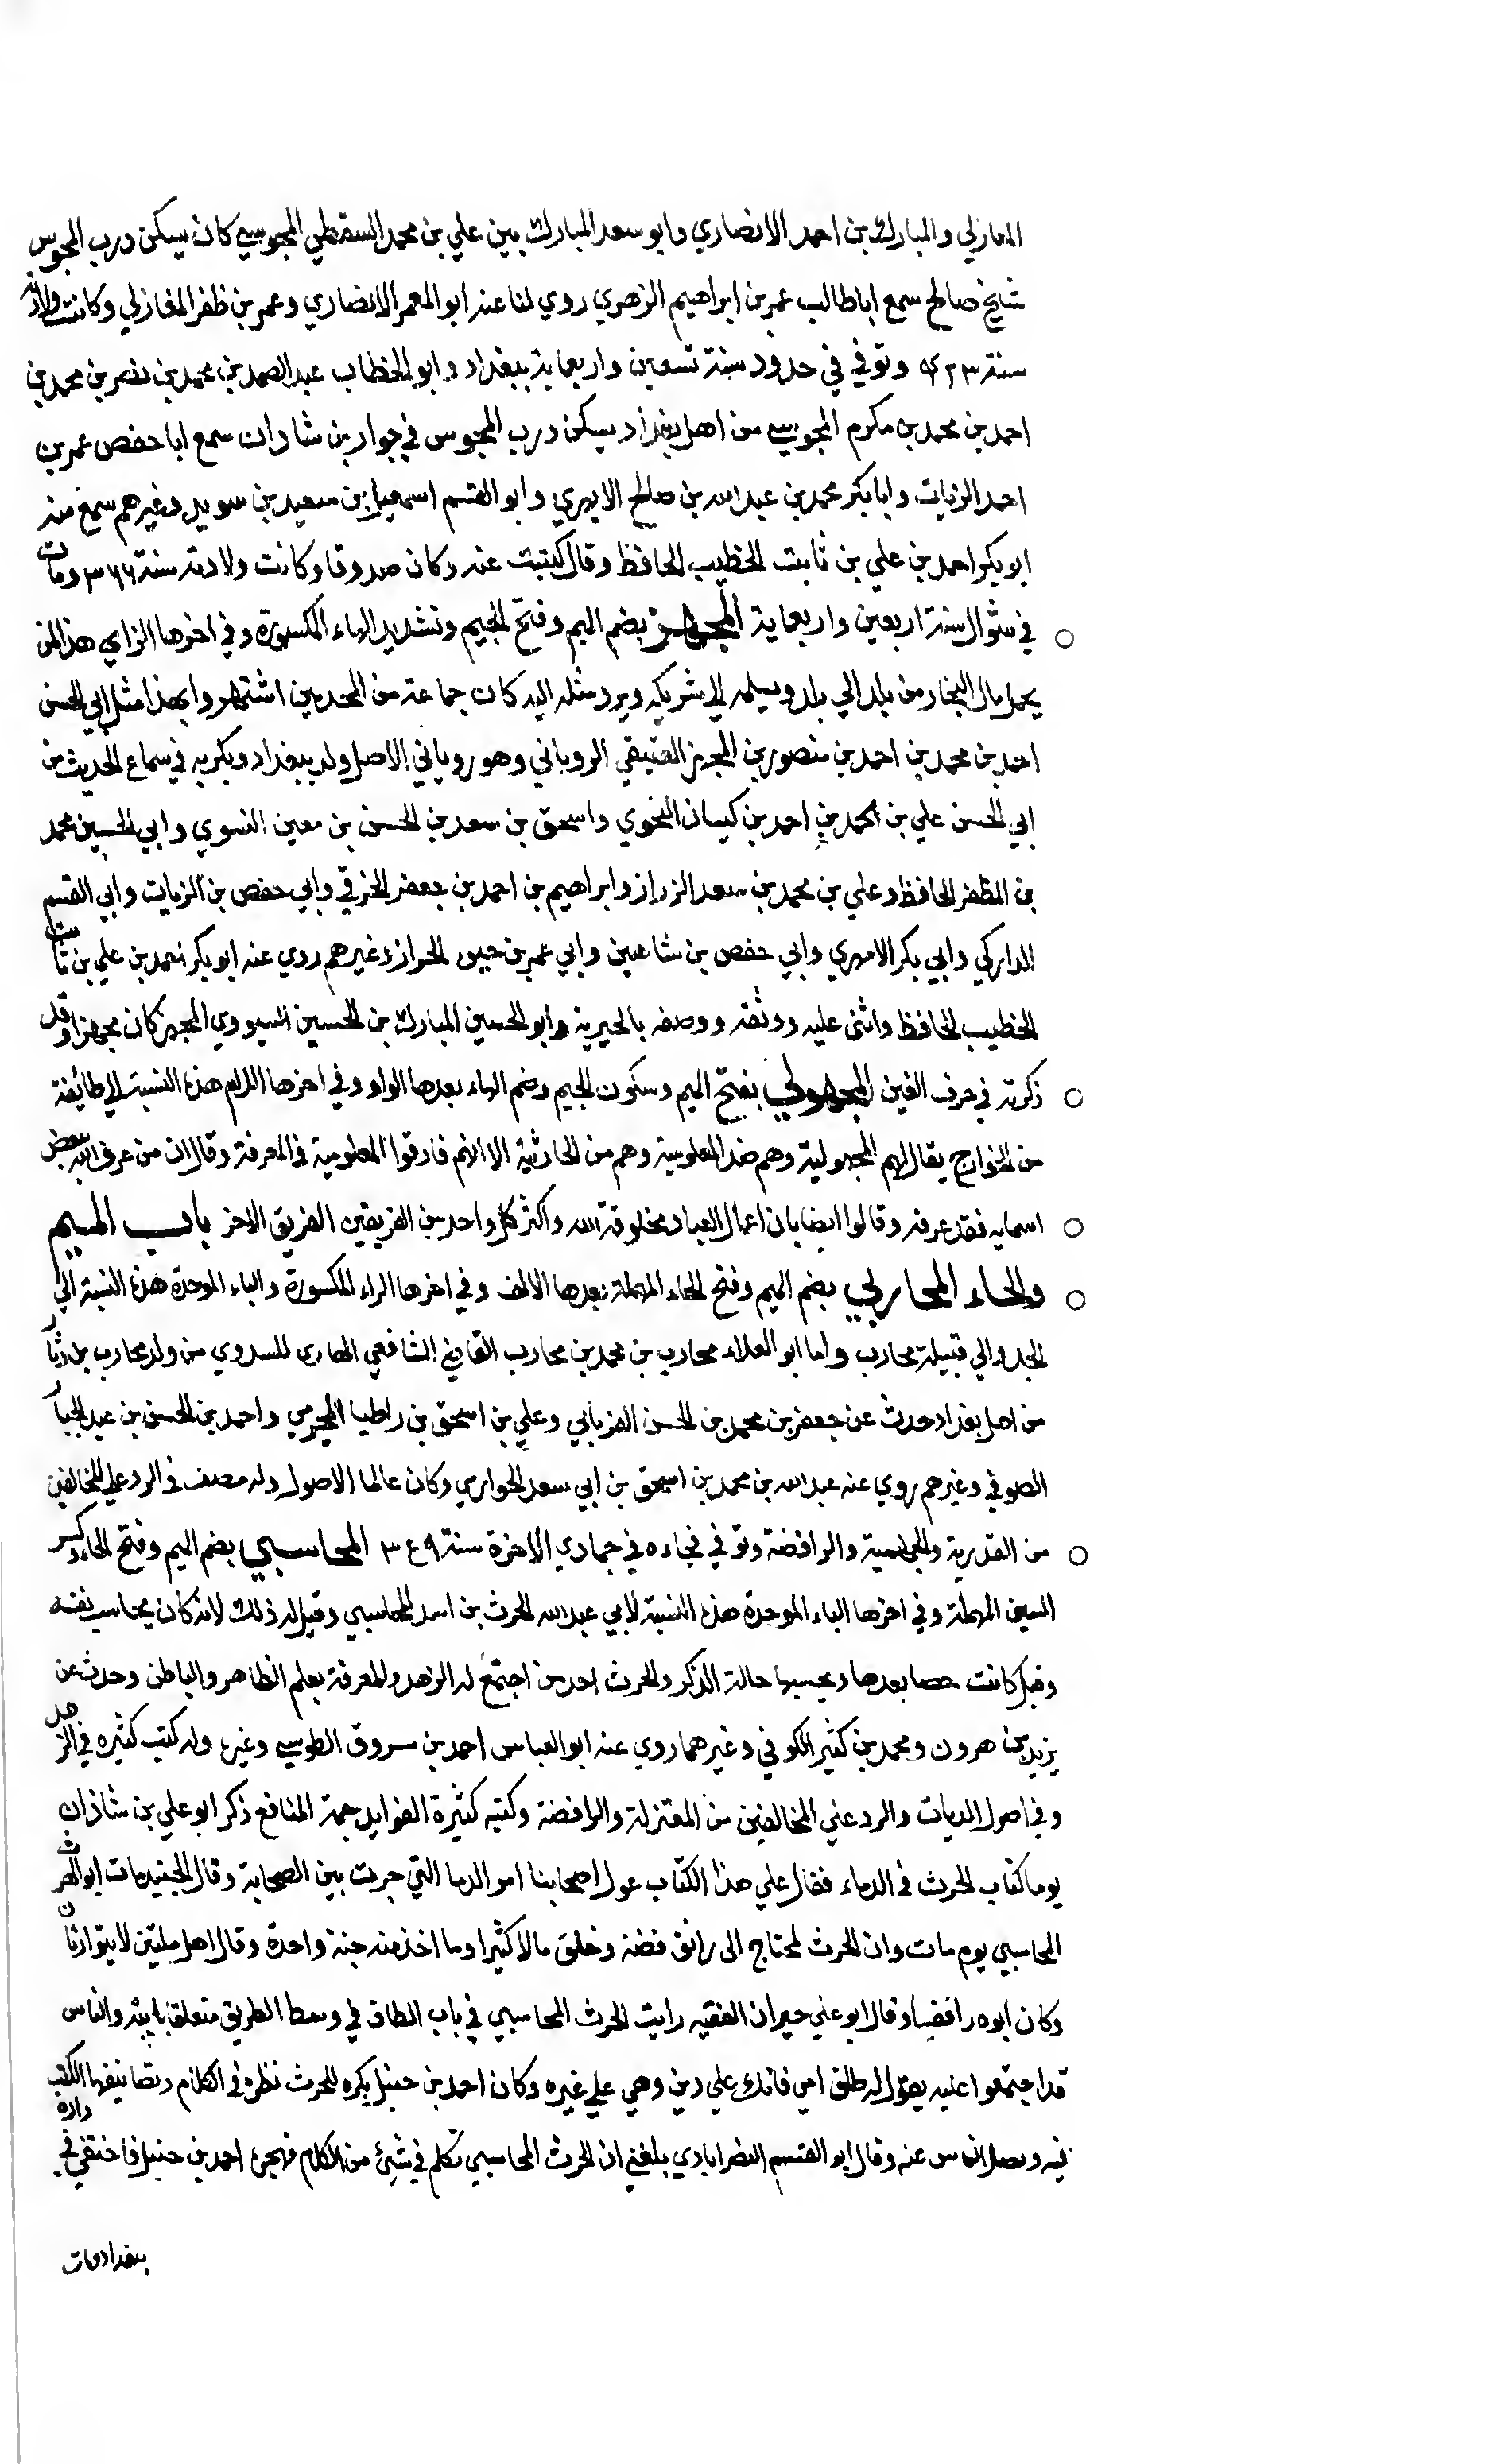 المغازلي والمبارك بن احمد الانصاري وابو سعد المبارك بن علي بن محمد السقطي المجوسي كان يسكن درب المجوس
شيخ صالح سمع اباطالب عمر بن ابراهيم الزهري روي لنا عنه ابو المعمر الانصاري وعمر بن ظفر المغازلي وكانت ولادته
سنة ٤٢٣ وتوفي في حدود سنة تسعين واربعماية ببغداد وابو الخطاب عبد الصمد بن محمد بن نصر بن محمد بن
احمد بن محمد بن مكرم المجوسي من اهل بغداد يسكن درب المجوس في جوار بن شاذان سمع ابا حفص عمر بن
احمد الزيات وابا بكر محمد بن عبد الله بن صالح الابهري وابو القسم اسمعيل بن سعيد بن سويد وغيرهم سمع منه
ابو بكر احمد بن علي بن ثابت الخطيب الحافظ وقال كتبت عنه وكان صدوقا وكانت ولادته سنة ٣٦٦ ومات
في شوال سنة اربعين واربعماية المجهز بضم الميم وفتح الجيم وتشديد الهاء المكسورة وفي اخرها الزاي هذا لمن
يحمل مال التجار من بلد الي بلد ويسلمه الي شريكه ويرد مثله اليه كان جماعة من المحدثين اشتهروا بهذا مثل ابي الحسن
احمد بن محمد بن احمد بن منصور بن المجهز العتيقي الروياني وهو روياني الاصل ولد ببغداد وبكر به في سماع الحديث من
ابي الحسن علي بن محمد بن احمد بن كيسان النحوي واسحق بن سعد بن الحسن بن معين النسوي وابي الحسين محمد
بن المظفر الحافظ وعلي بن محمد بن سعد الرزاز وابراهيم بن احمد بن جعفر الخرقي وابي حفص بن الزيات وابي القسم
الداركي وابي بكر الابهري وابي حفص بن شاهين وابي عمر بن حيويه الخزاز وغيرهم روي عنه ابو بكر احمد بن علي بن ثابت
الخطيب الحافظ واثنى عليه ووثقه ووصفه بالخيرية وابو الحسين المبارك بن الحسين المجهز كان مجهزا وقد
ذكرته في حرف الغين المجهولي بفتح الميم وسكون الجيم وضم الهاء بعدها الواو وفي اخرها اللام هذه النسبة الي طائفة
من الخوارج يقال لهم المجهولية وهم ضد المعلومية وهم من الحارثية الا انهم فارقوا المعلومية في المعرفة وقال ان من عرف الله ببعض
اسمايه فقد عرفه وقالوا ايضا بان اعمال العباد مخلوقة الله واكثر كل واحد من الفريقين الفريق الاخر باب الميم
والحاء المحاربي بضم الميم وفتح الحاء المهملة بعدها الالف وفي اخرها الراء المكسورة والباء الموحدة هذه النسبة الي
الجد والي قبيلة محارب واما ابو العلاء محارب بن محمد بن محارب القاضي الشافعي المحاربي السدوي من ولد محارب بن دثار
من اهل بغداد حدث عن جعفر بن محمد بن الحسن الفريابي وعلي بن اسحق بن زاطيا المخرمي واحمد بن الحسن بن عبد الجبار
الصوفي وغيرهم روي عنه عبد الله بن محمد بن اسحق بن ابي سعد وكان عالما الاصول وله مصنف في الرد علي المخالفين
من القدرية والجهمية والرافضة وتوفي فجاءه في جمادي الاخرة سنة ٣٤٩ المحاسبي بضم الميم وفتح الحاء وكسر
السين المهملة وفي اخرها الباء الموحدة هذه النسبة لابي عبد الله الحرث بن اسد المحاسبي وقيل له ذلك لانه كان يحاسب نفسه
وقيل كانت حصا بعدها ويحسبها حالة الذكر والحرث احد من اجتمع له الزهد والمعرفة بعلم الظاهر والباطن وحدث عن
يزيد بن هرون ومحمد بن كثير الكوفي وغيرهما روي عنه ابو العباس احمد بن مسروق الطوسي وغيره وله كتب كثيره في الزهد
وفي اصول الديات والرد علي المخالفين من المعتزلة والرافضة وكتبه كثيرة الفوايد جمة المنافع ذكر ابو علي بن شاذان
يوما كتاب الحرث في الدماء فقال علي هذا الكتاب عول اصحابنا امر الدما التي جرت بين الصحابة وقال الجنيد مات ابو الحرث
المحاسبي يوم مات وان الحرث لمحتاج الى دانق فضة وخلف مالا كثيرا وما اخذ منه حبة واحدة وقال اهل ملتين لا يتوارثان
وكان ابوه رافضيا وقال ابو علي خيران الفقيه رايت الحرث المحاسبي في باب الطاق في وسط الطريق متعلقا بابيه والناس
قد اجتمعوا عليه يقول له طلق امي فانك علي دين وهي علي غيره وكان احمد بن حنبل يكره للحرث نظره في الكلام وتصانيفه الكتب
فيه ويصد الناس عنه وقال ابو القسم النصرابادي بلغني ان الحرث المحاسبي تكلم في شئ من الكلام فهجره احمد بن حنبل فاختفي في داره
ببغداد ومات